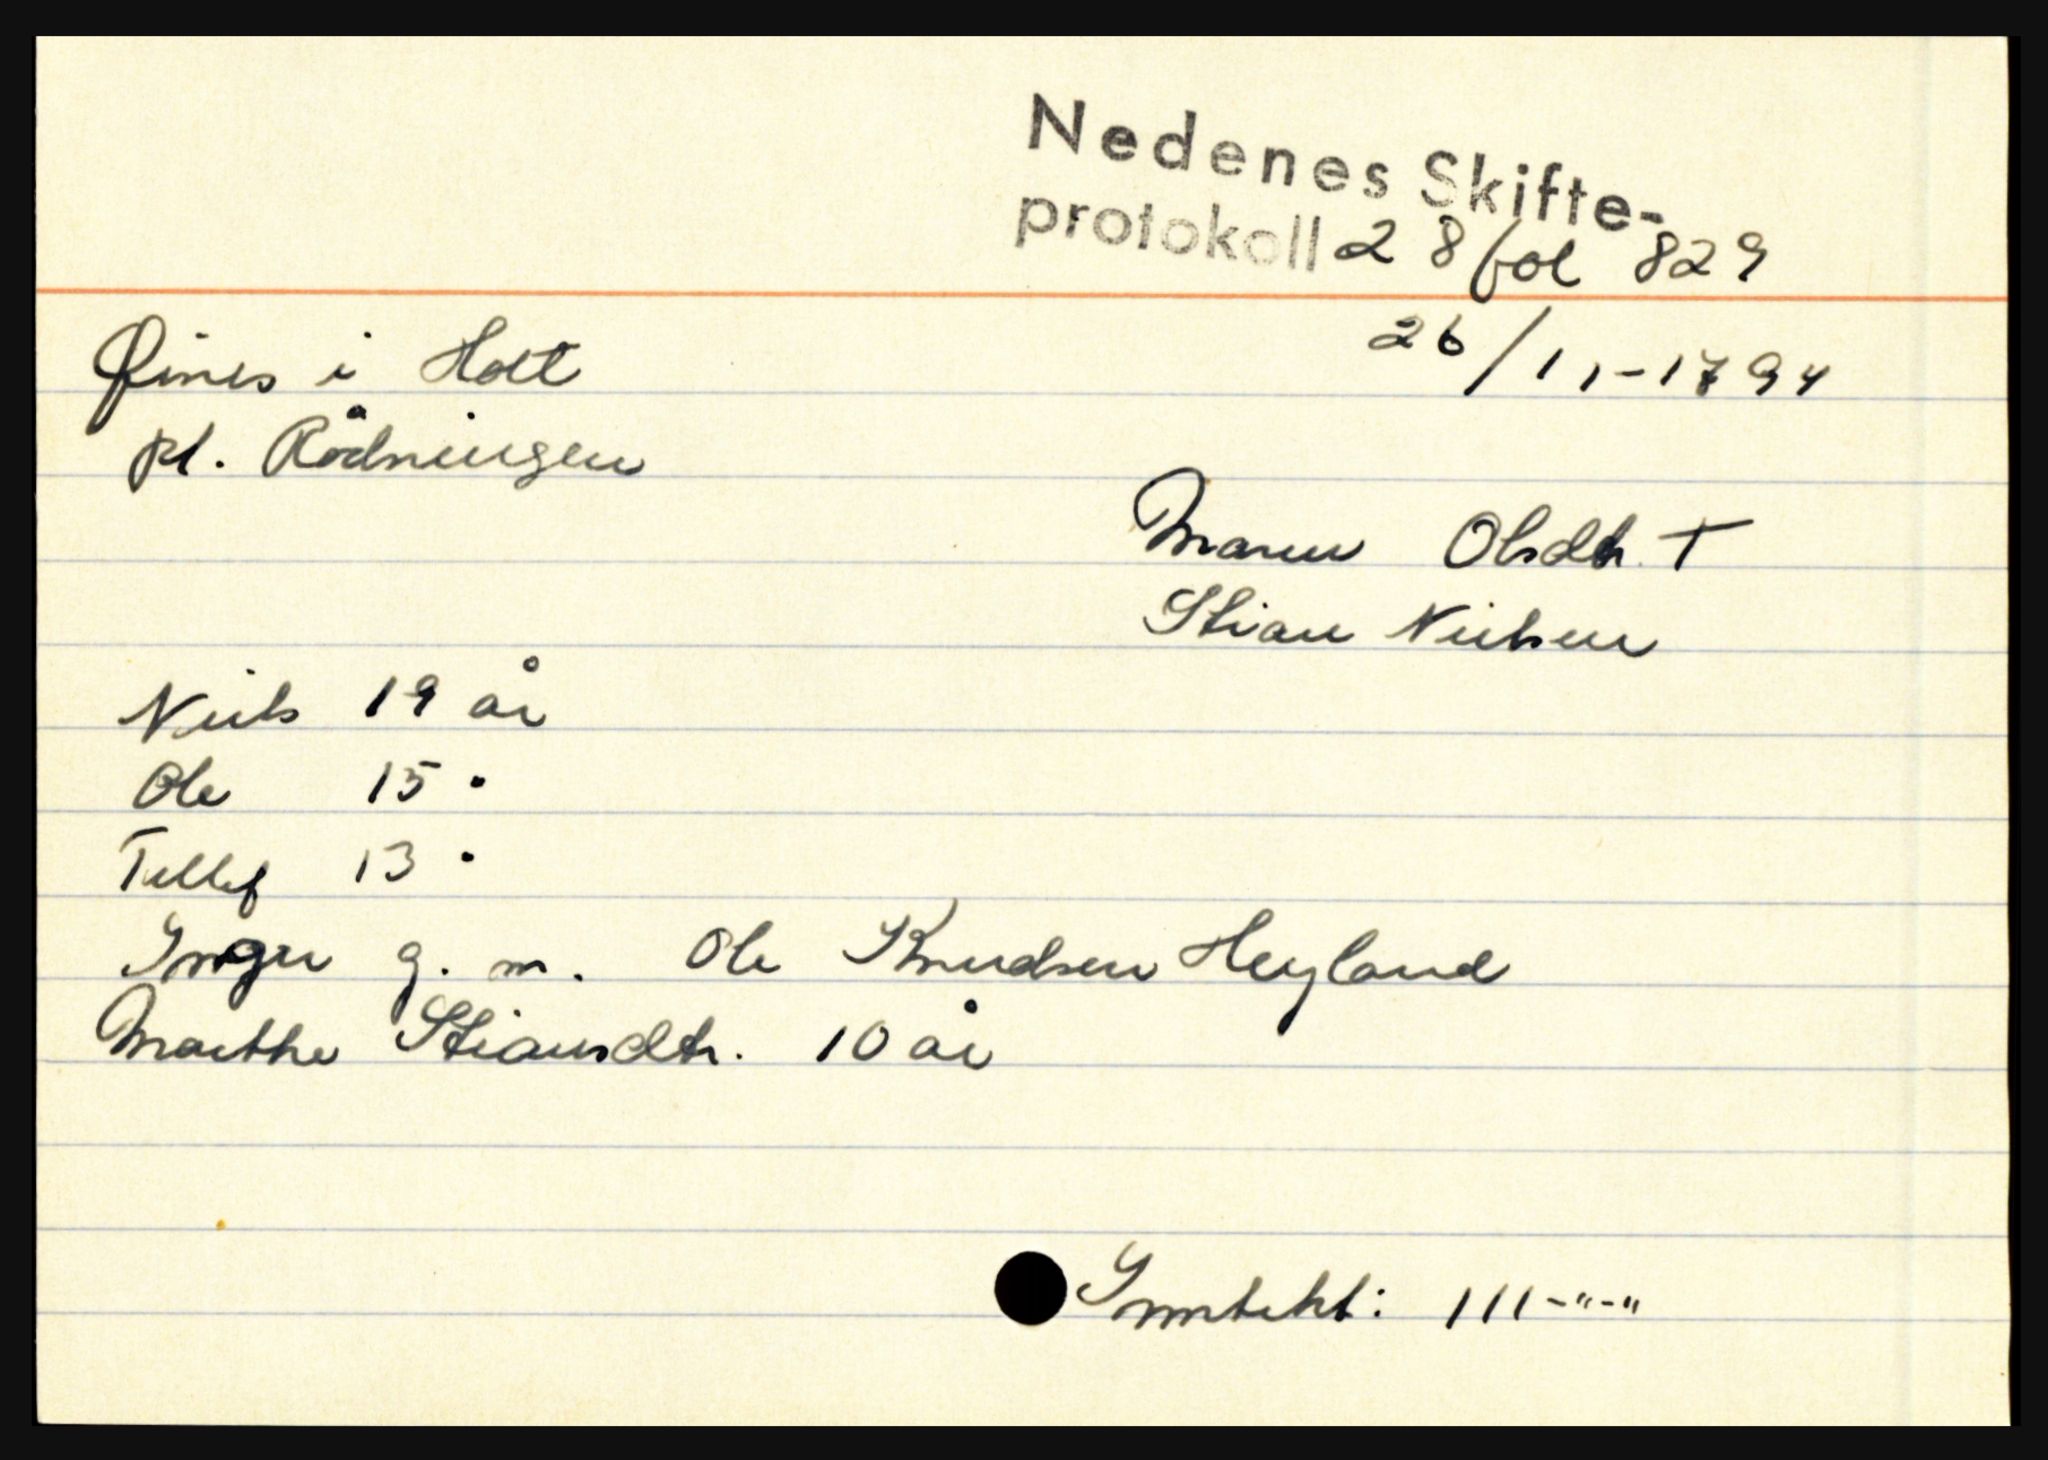 Nedenes Skifte-
protokoll 28 fol 829
Øines i Holt
26/11-1794
pl. Rådningen
Maren Olsdtr. †
Stian Nielsen
Niels 19 år
Ole 15 "
Tellef 13 "
Inger g. m. Ole Knudsen Heyland
Marthe Stiansdtr. 10 år
Inntekt: 111-"-"